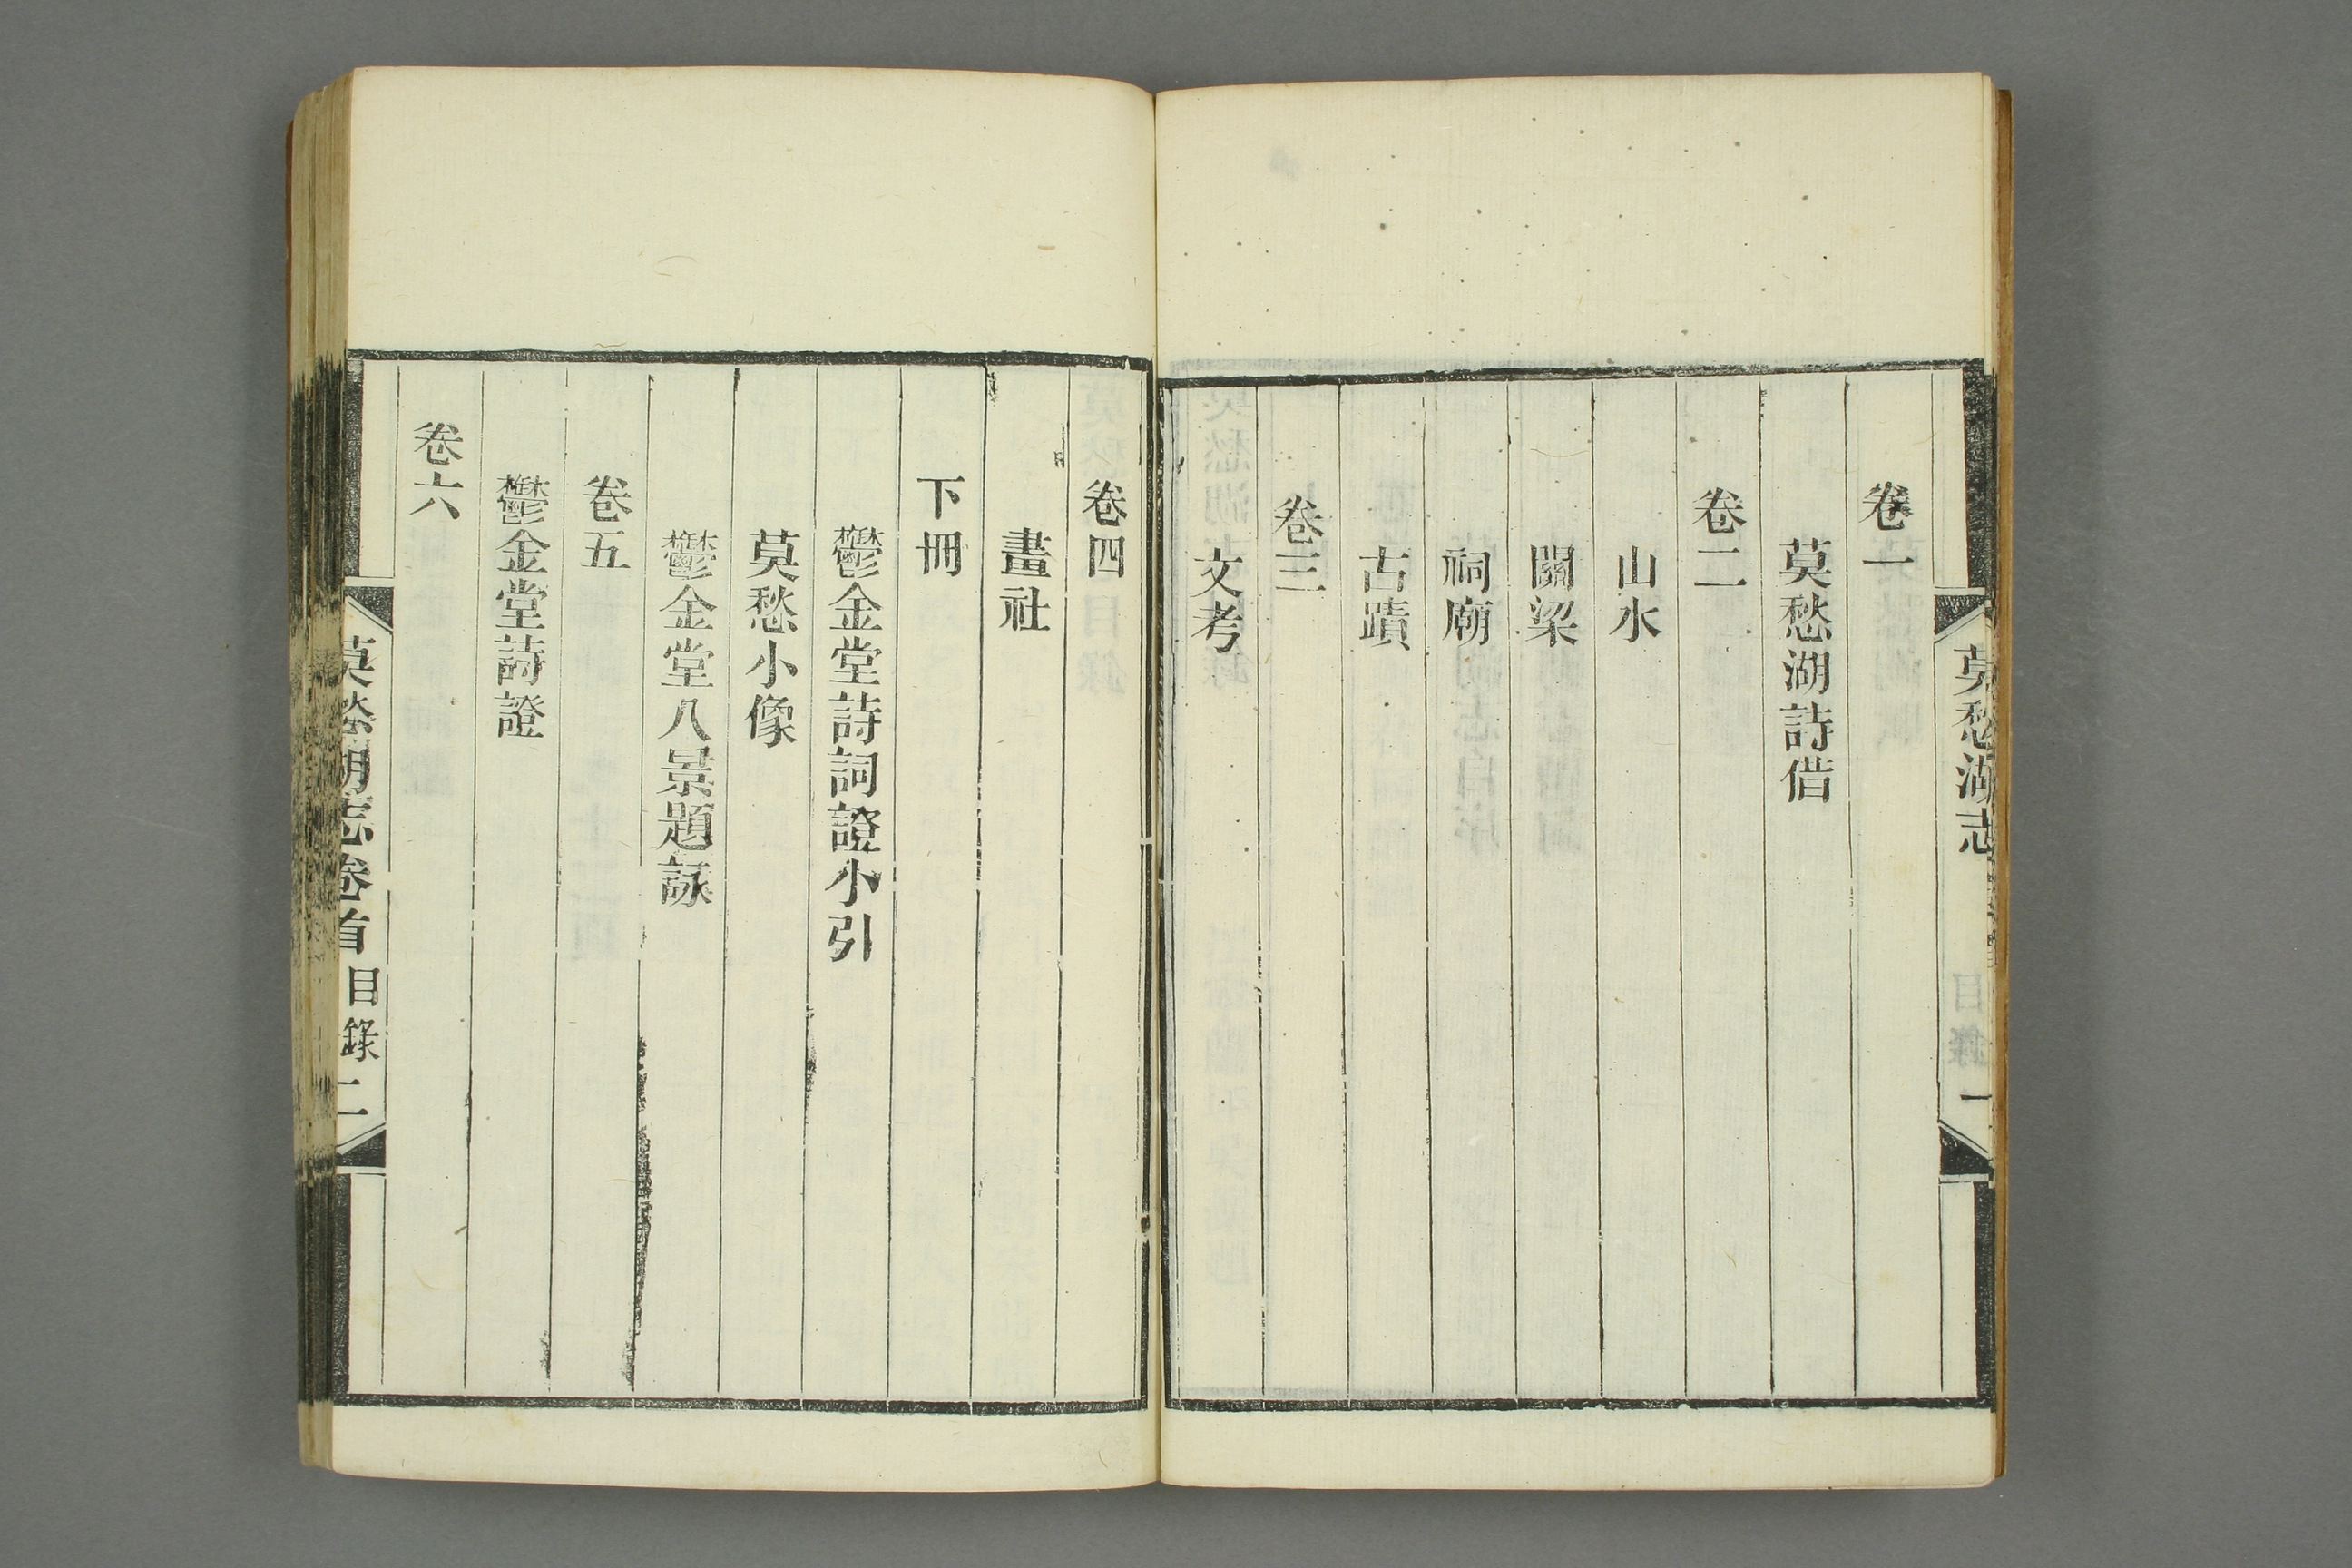 莫愁湖志
目錄
一
卷一
莫愁湖詩借
卷二
山水
關梁
祠廟
古蹟
卷三
文考
卷四
畫社
下冊
鬱金堂詩詞證小引
莫愁小像
鬱金堂八景題詠
卷五
鬱金堂詩證
卷六
莫愁湖志卷首
目錄
二